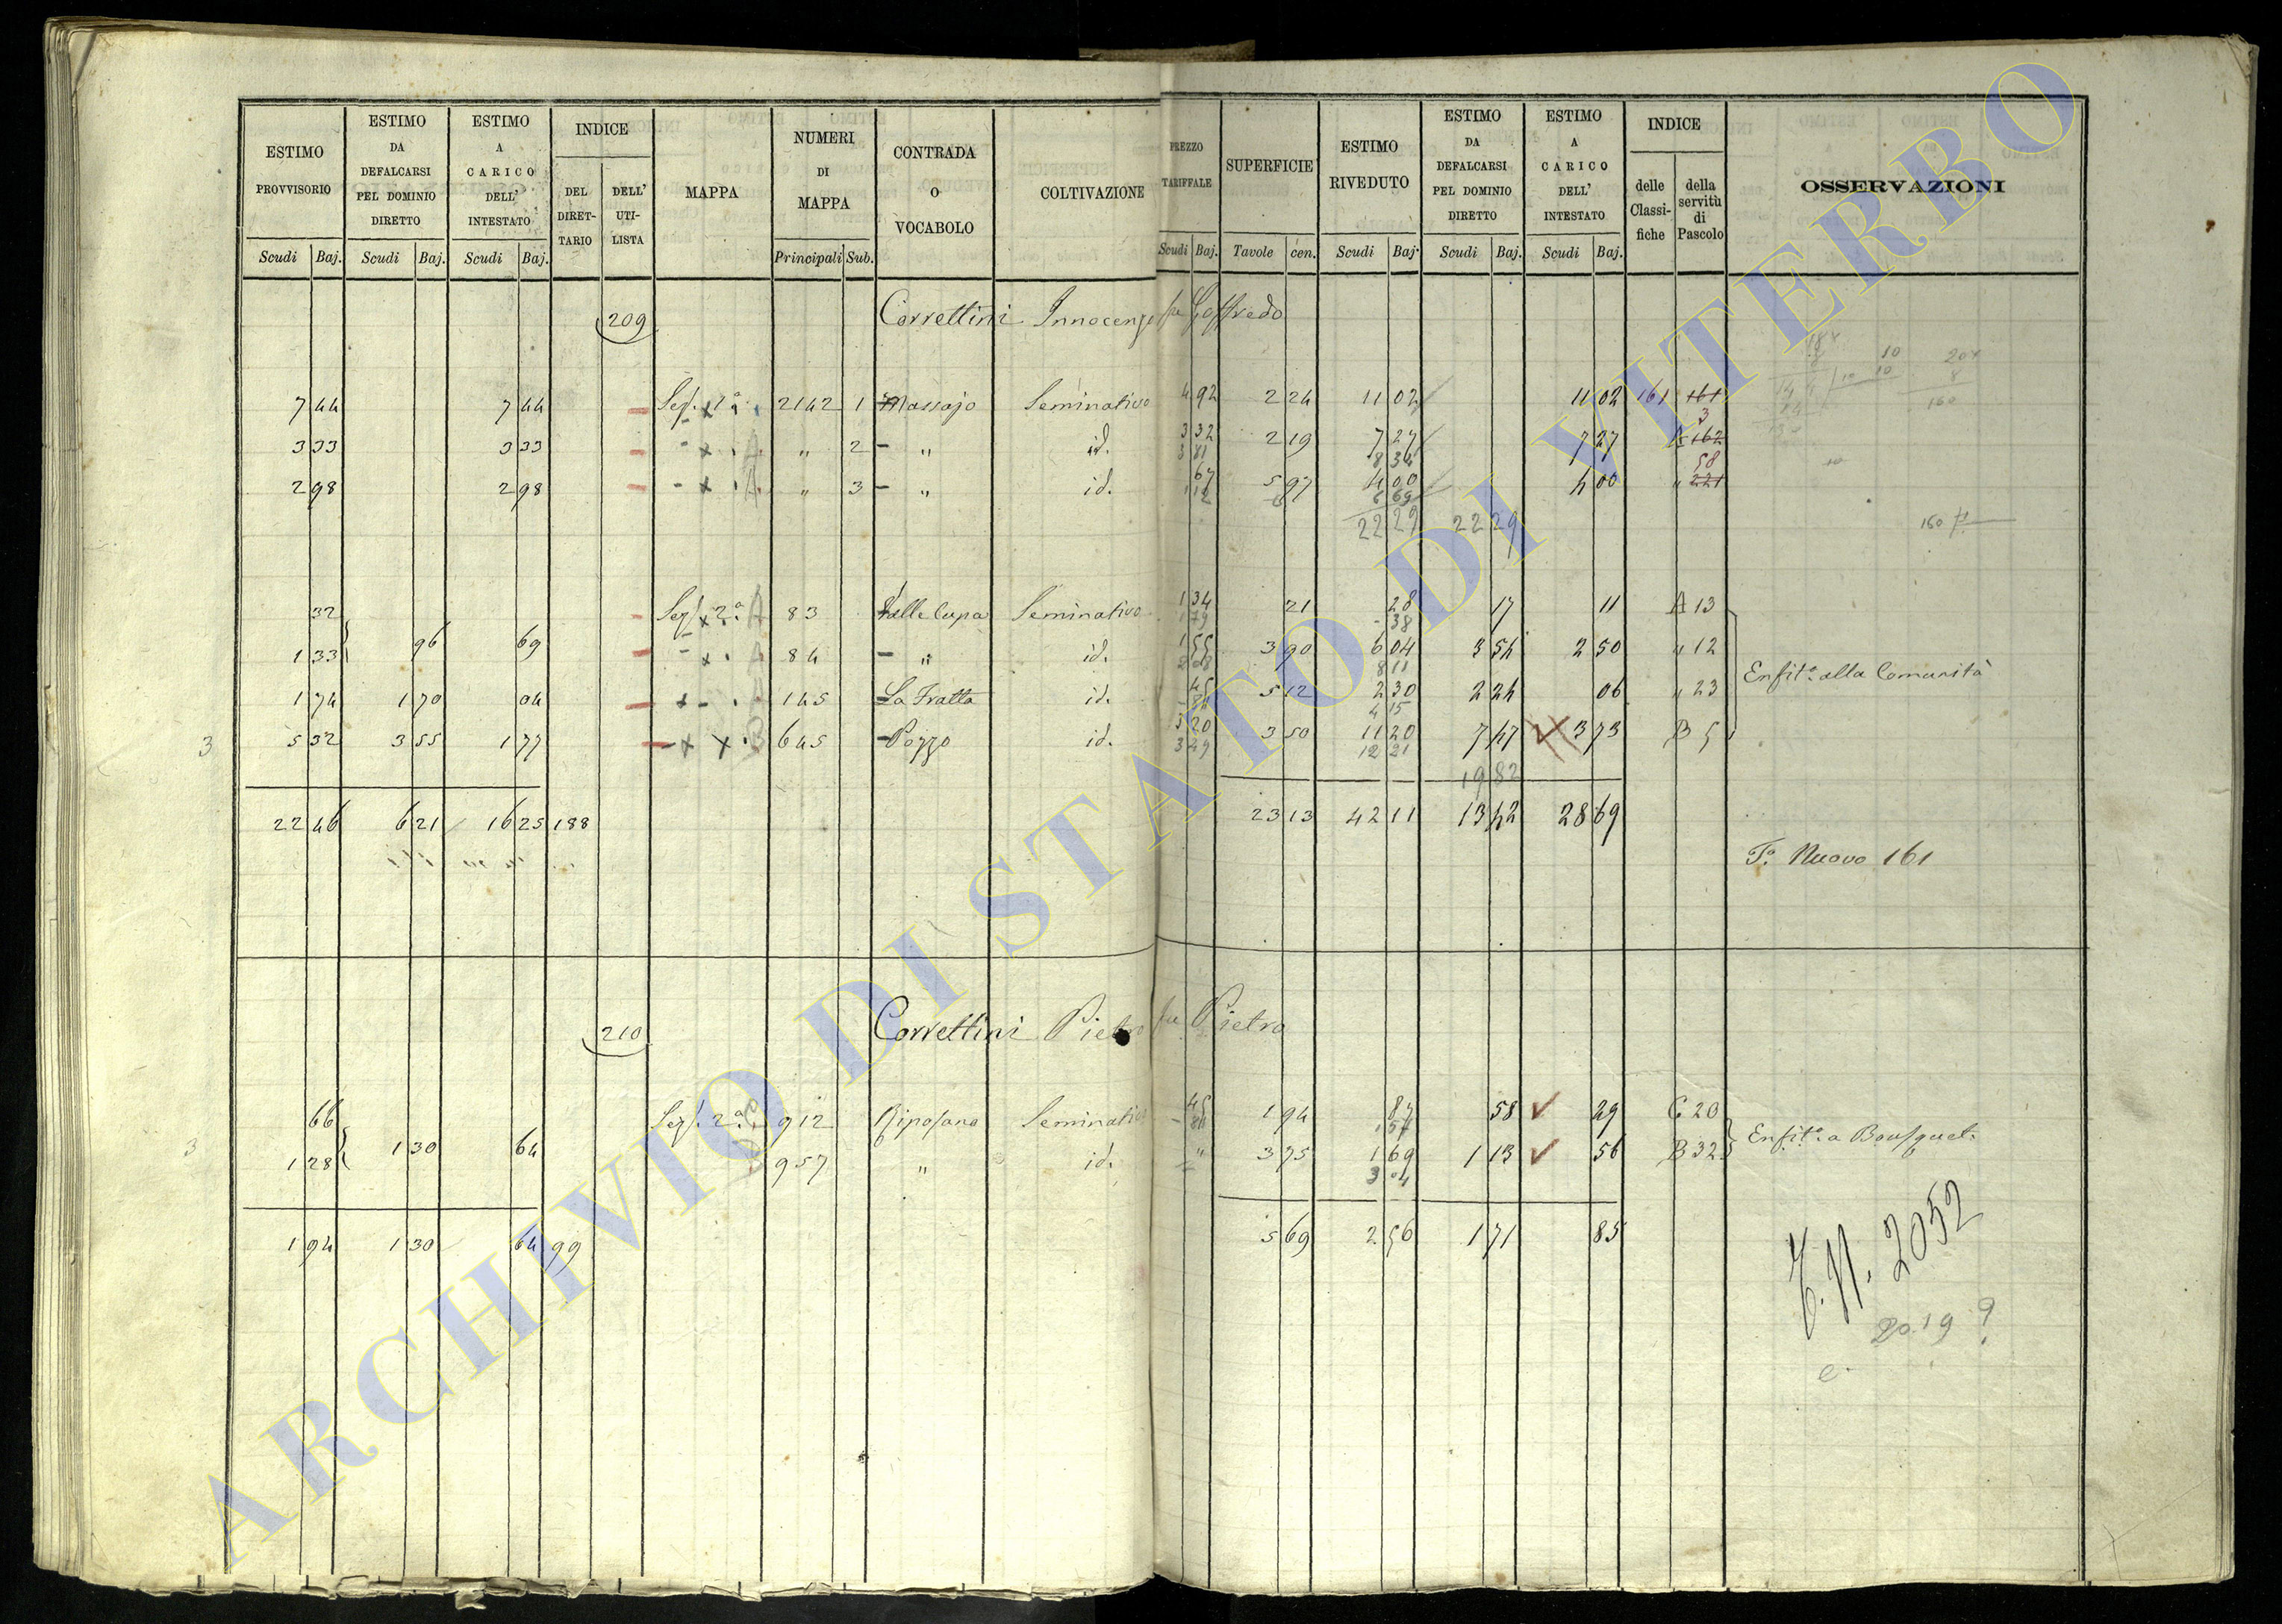 ESTIMO PROVVISORIO
ESTIMO DA DEFALCARSI PEL DOMINIO DIRETTO
ESTIMO A CARICO DELL' INTESTATO
INDICE
DEL DIRETTARIO
DELL' UTILISTA
MAPPA
NUMERI DI MAPPA
CONTRADA O VOCABOLO
COLTIVAZIONE
PREZZO TARIFFALE
SUPERFICIE
ESTIMO RIVEDUTO
ESTIMO DA DEFALCARSI PEL DOMINIO DIRETTO
ESTIMO A CARICO DELL' INTESTATO
INDICE
delle Classifiche
della servitù di Pascolo
OSSERVAZIONI
Scudi Baj. Scudi Baj. Scudi Baj. Principali Sub. Scudi Baj. Tavole cen. Scudi Baj. Scudi Baj. Scudi Baj.
209 Correttini Innocenzo fu Goffredo
7 44 7 44 Sez. 1ª 2142 1 Massajo Seminativo 4 92 2 24 11 02 11 02 161 161
3
3 33 3 33 " 2 " id. 3 32 2 19 7 27 7 27 A 162
3 81 8 34 58
2 98 2 98 " 3 " id. 67 5 97 4 00 4 00 " 221
1 12 6 69
22 29 22 29
160
32 Sez. 2ª A 83 Valle Cupa Seminativo 1 34 21 28 17 11 A 13
1 79 38
96 69
1 33 84 " id. 1 55 3 90 6 04 3 54 2 50 " 12
2 08 8 11
Enfit.ª alla Comunità
1 74 1 70 04 145 La Fratta id. 45 5 12 2 30 2 24 06 " 23
4 15
3 5 32 3 55 1 77 645 Pozzo id. 3 20 3 50 11 20 7 47 3 73 B 5
3 49 12 21
19 82
22 46 6 21 16 25 188 23 13 42 11 13 42 28 69
Fº. Nuovo 161
210 Correttini Pietro fu Pietro
66 Sez. 2ª C 912 Riposana Seminativo 45 1 94 87 58 29 C 20
3 1 30 64
Enfit.ª a Bousquet.
1 28 957 " id. " 3 75 1 69 1 13 56 B 32
3 04
1 94 1 30 64 99 5 69 2 56 1 71 85
F. N. 2052
2019 ?
ARCHIVIO DI STATO DI VITERBO